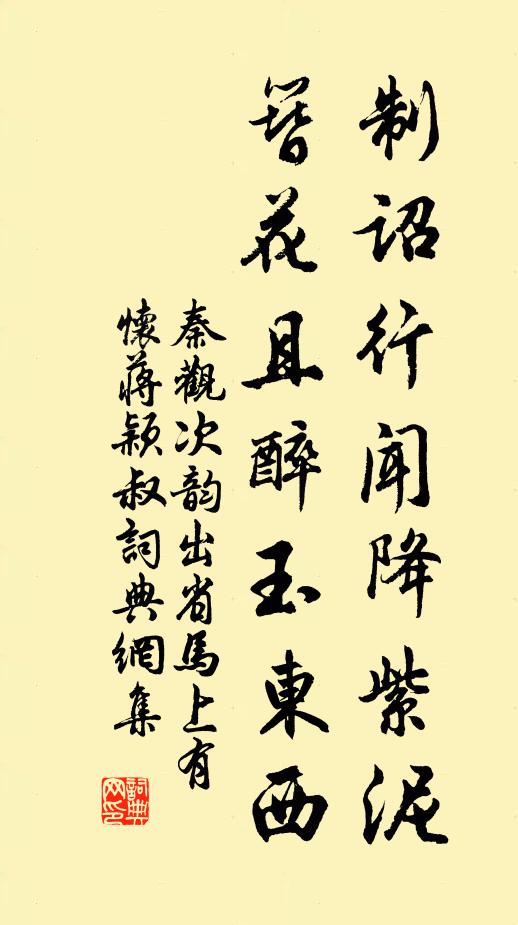 制詔行聞降紫泥
簪花且醉玉東西
秦觀次韵出省馬上有
懷蔣穎叔詞典網集
詞典网印